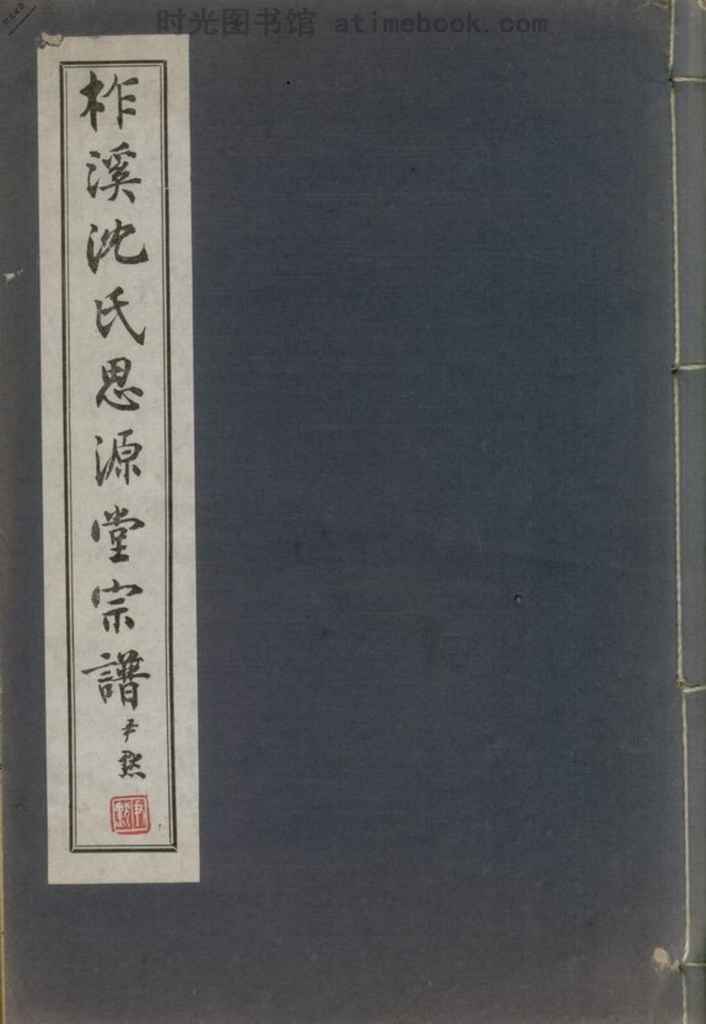 时光图书馆 atimebook.com
柞溪沈氏思源堂宗譜
尹默